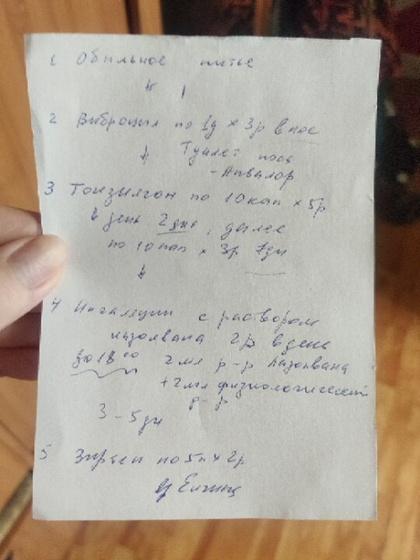 1 Обильное питье
2 Виброцил по 1д х 3р в нос
Туалет носа
- Аквалор
3 Тонзилгон по 10 кап х 5р
в день 2 дня, далее
по 10 кап х 3р 7дн
4 Ингаляции с раствором
лазолвана 2р в день
до 18 00 2 мл р-р лазолвана
+ 2 мл физиологический
р-р
3 - 5 дн
5 Зиртек по 5к х 2р